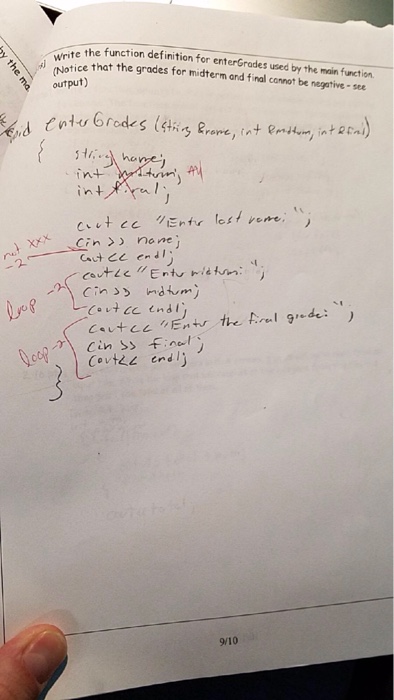 by the ma
) Write the function definition for enterGrades used by the main function.
(Notice that the grades for midterm and final cannot be negative - see
output)
void enterGrades (string &name, int &midterm, int &final)
{
string name;
int midterm;
int final;
cout << "Enter last name: ";
not xxx
-2
cin >> name;
cout << endl;
cout << "Enter midterm: ";
loop -2
cin >> midterm;
cout << endl;
cout << "Enter the final grade: ";
loop -2
cin >> final;
cout << endl;
}
9/10